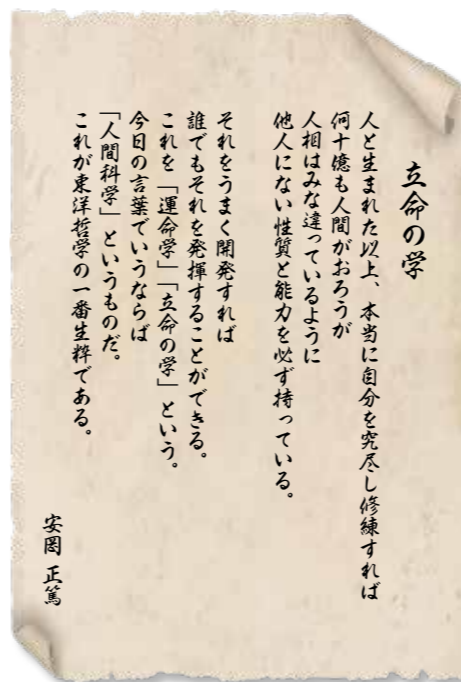 立命の学
人と生まれた以上、本当に自分を究尽し修練すれば
何十億も人間がおろうが
人相はみな違っているように
他人にない性質と能力を必ず持っている。
それをうまく開発すれば
誰でもそれを発揮することができる。
これを「運命学」「立命の学」という。
今日の言葉でいうならば
「人間科学」というものだ。
これが東洋哲学の一番生粋である。
安岡 正篤